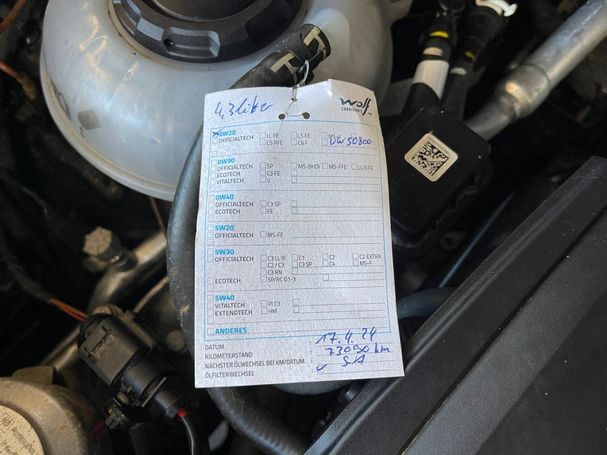 4,3 liter
Wolf
LUBRICANTS
0W20
OFFICIALTECH LL FE LS FE MS-V VW 50800
C5 RFE C6 F
0W30
OFFICIALTECH SP MS-BHDI MS-FFE LL III FE
ECOTECH C3 FE
VITALTECH V
0W40
OFFICIALTECH C3 SP
ECOTECH FE
5W20
OFFICIALTECH MS-FE
5W30
OFFICIALTECH C3 LL III C1 C2 C2 EXTRA
C2 / C3 C3 SP C4 MS-F
C3 RN
ECOTECH SP/RC G1-3
5W40
VITALTECH PI C3
EXTENDTECH HM
ANDERES
DATUM 17.4.24
KILOMETERSTAND 73090 km
NÄCHSTER ÖLWECHSEL BEI KM/DATUM
ÖLFILTERWECHSEL